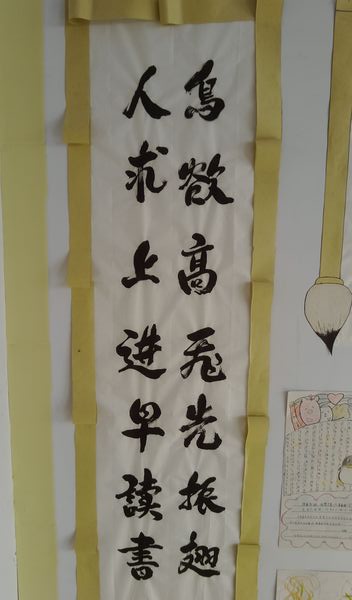 鸟欲高飞先振翅
人求上进早讀書